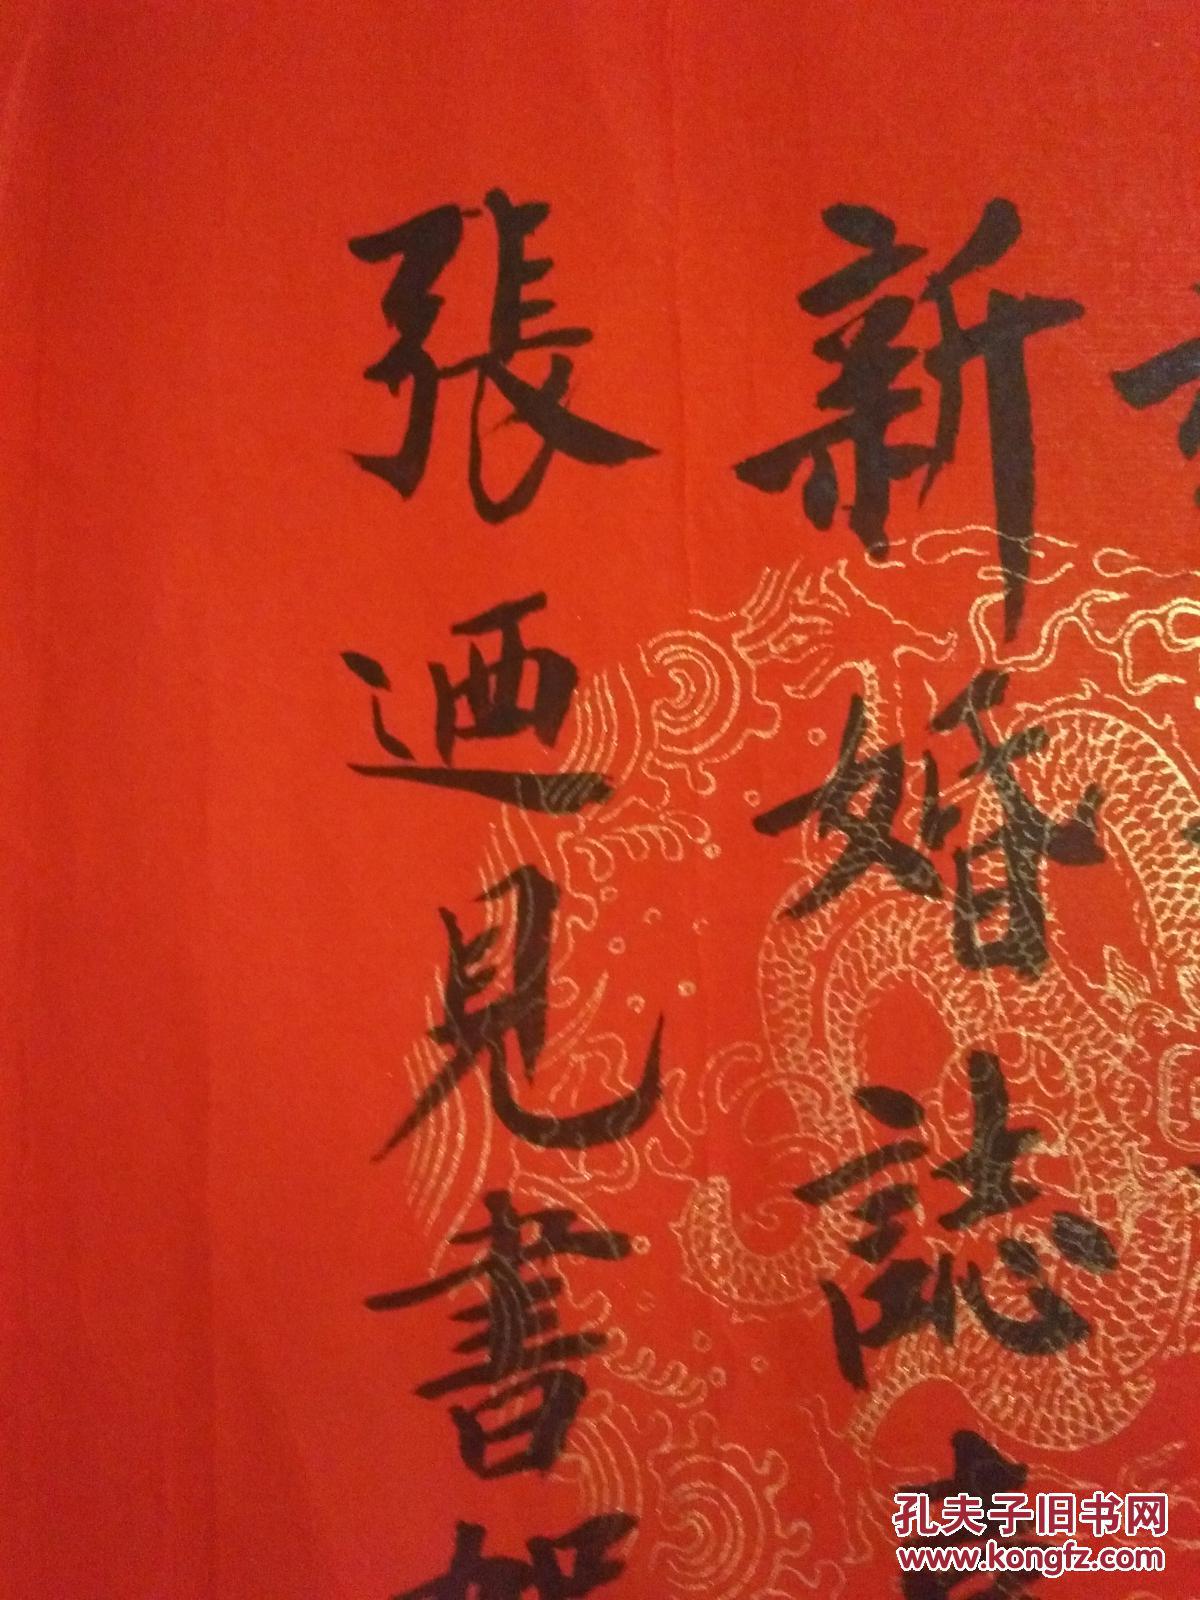 新婚誌喜
張迺見書賀
孔夫子旧书网
www.kongfz.com